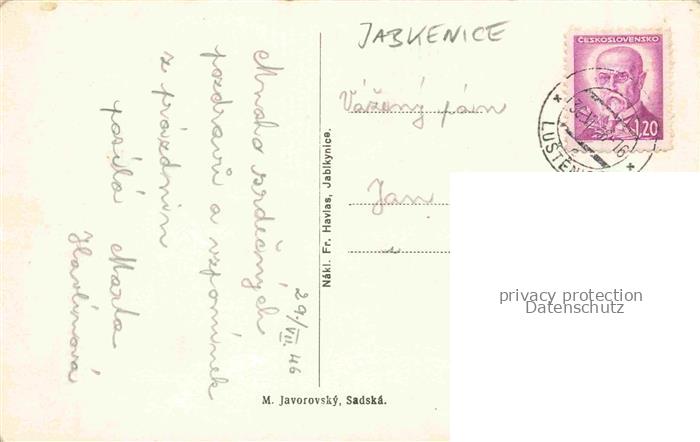 JABKENICE
Mnoho srdečných
pozdravů a vzpomínek
z prázdnin
posílá Marta
Havlínová
29./VII. 46
Nákl. Fr. Havlas, Jablkynice.
M. Javorovský, Sadská.
ČESKOSLOVENSKO
1.20
LUŠTĚNI
Vážený pán
Jan
privacy protection
Datenschutz